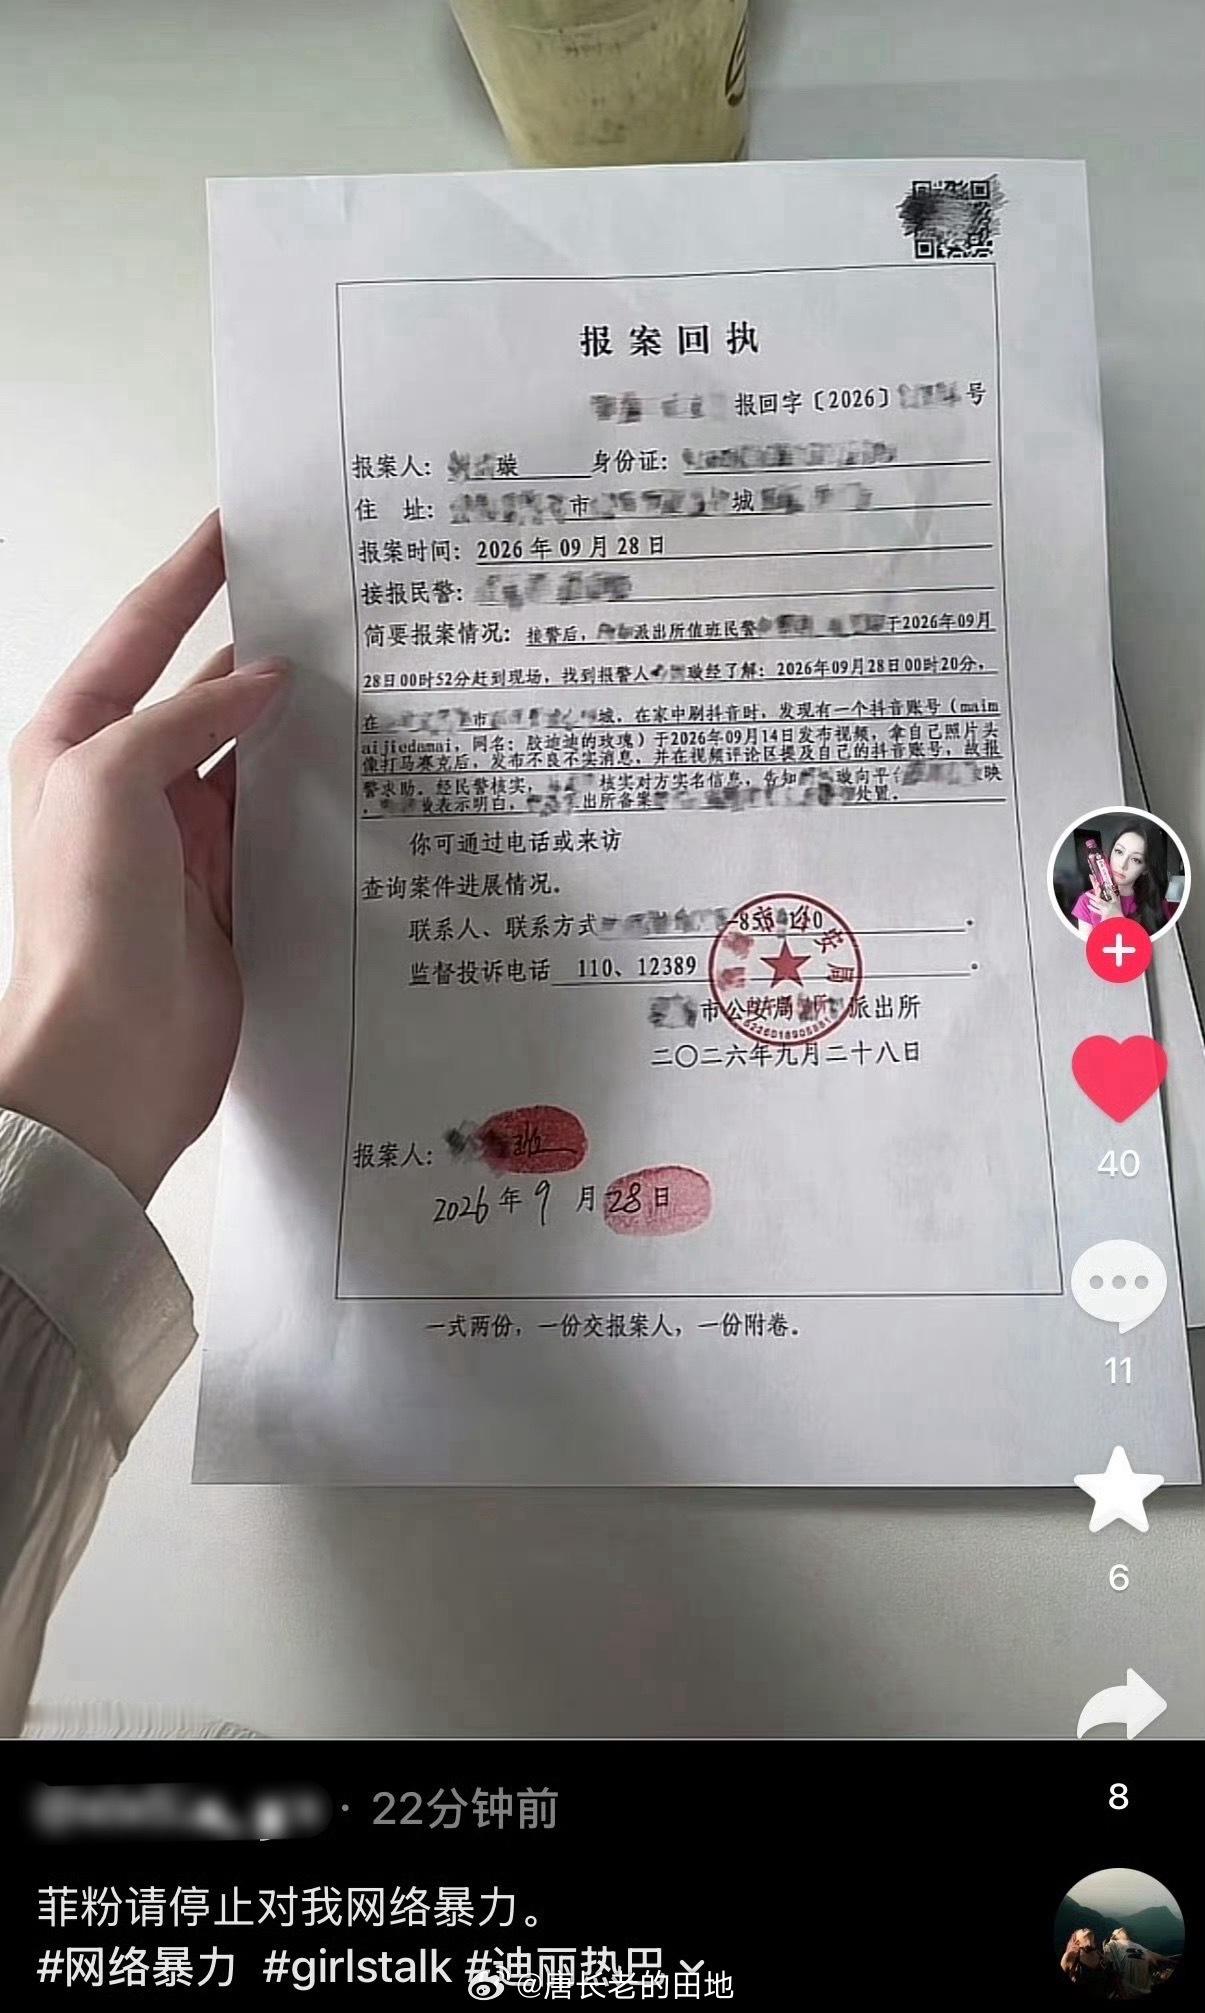 报案回执
报回字〔2026〕 号
报案人: 璇 身份证:
住 址: 市 城
报案时间: 2026年09月28日
接报民警:
简要报案情况: 接警后, 派出所值班民警 于2026年09月
28日00时52分赶到现场,找到报警人 璇经了解:2026年09月28日00时20分,
在 市 城,在家中刷抖音时,发现有一个抖音账号(maim
aijiedamai,网名:胶迪迪的玫瑰)于2026年09月14日发布视频,拿自己照片头
像打马赛克后,发布不良不实消息,并在视频评论区提及自己的抖音账号,故报
警求助。经民警核实, 核实对方实名信息,告知 璇向平台 映
, 表示明白, 出所备案 处置。
你可通过电话或来访
查询案件进展情况。
联系人、联系方式 。
监督投诉电话 110、12389 。
市公安局 派出所
二〇二六年九月二十八日
报案人:
2026年9月28日
一式两份,一份交报案人,一份附卷。
40
11
6
8
· 22分钟前
菲粉请停止对我网络暴力。
#网络暴力 #girlstalk #迪丽热巴
@唐长老的田地